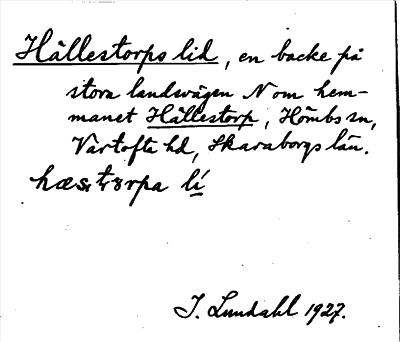 Hällestorps lid, en backe på
stora landsvägen N om hem-
manet Hällestorp, Hömbs sn,
Vartofta hd, Skaraborgs län.
lí
J. Lundahl 1927.